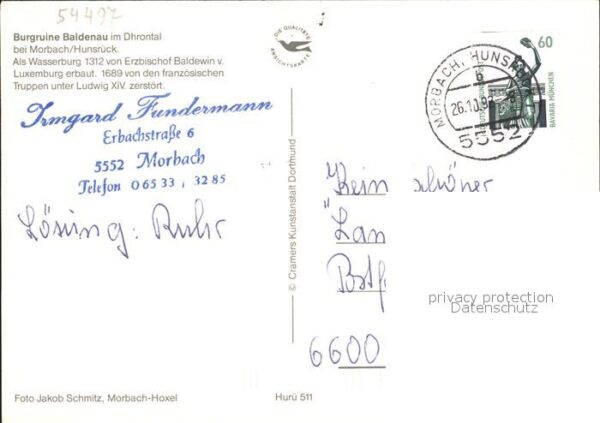 54497
Burgruine Baldenau im Dhrontal
bei Morbach/Hunsrück.
Als Wasserburg 1312 von Erzbischof Baldewin v.
Luxemburg erbaut. 1689 von den französischen
Truppen unter Ludwig XiV. zerstört.
DIE QUALITÄTS
ANSICHTSKARTE
Irmgard Fundermann
Erbachstraße 6
5552 Morbach
Telefon 0 65 33 / 32 85
Lösung: Ruhr
© Cramers Kunstanstalt Dortmund
MORBACH, HUNSRÜCK
b
26.10.
5552
60
BAVARIA MÜNCHEN
Kein schöner
"Lan
Postf
6600
privacy protection
Datenschutz
Foto Jakob Schmitz, Morbach-Hoxel
Hurü 511